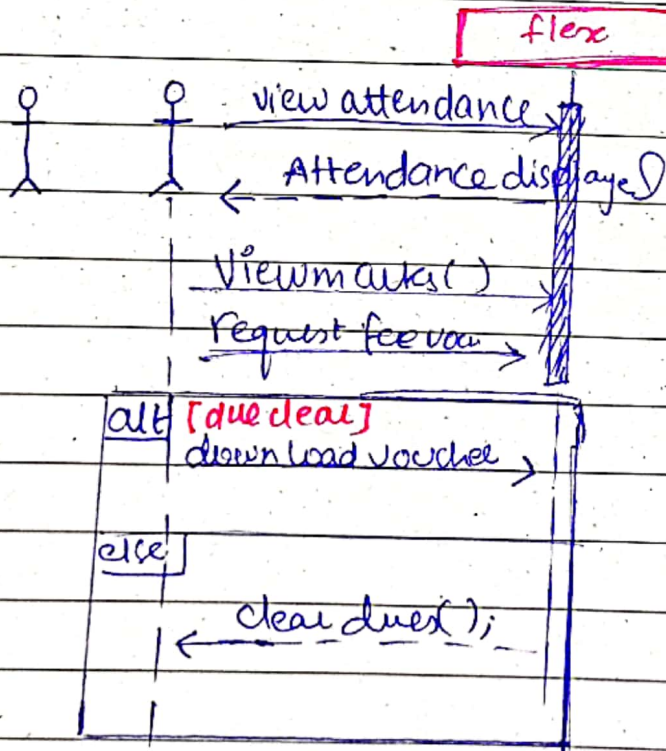 flex
view attendance
Attendance displayed
Viewmarks()
request fee vou
alt [due clear]
download voucher
else
clear dues();